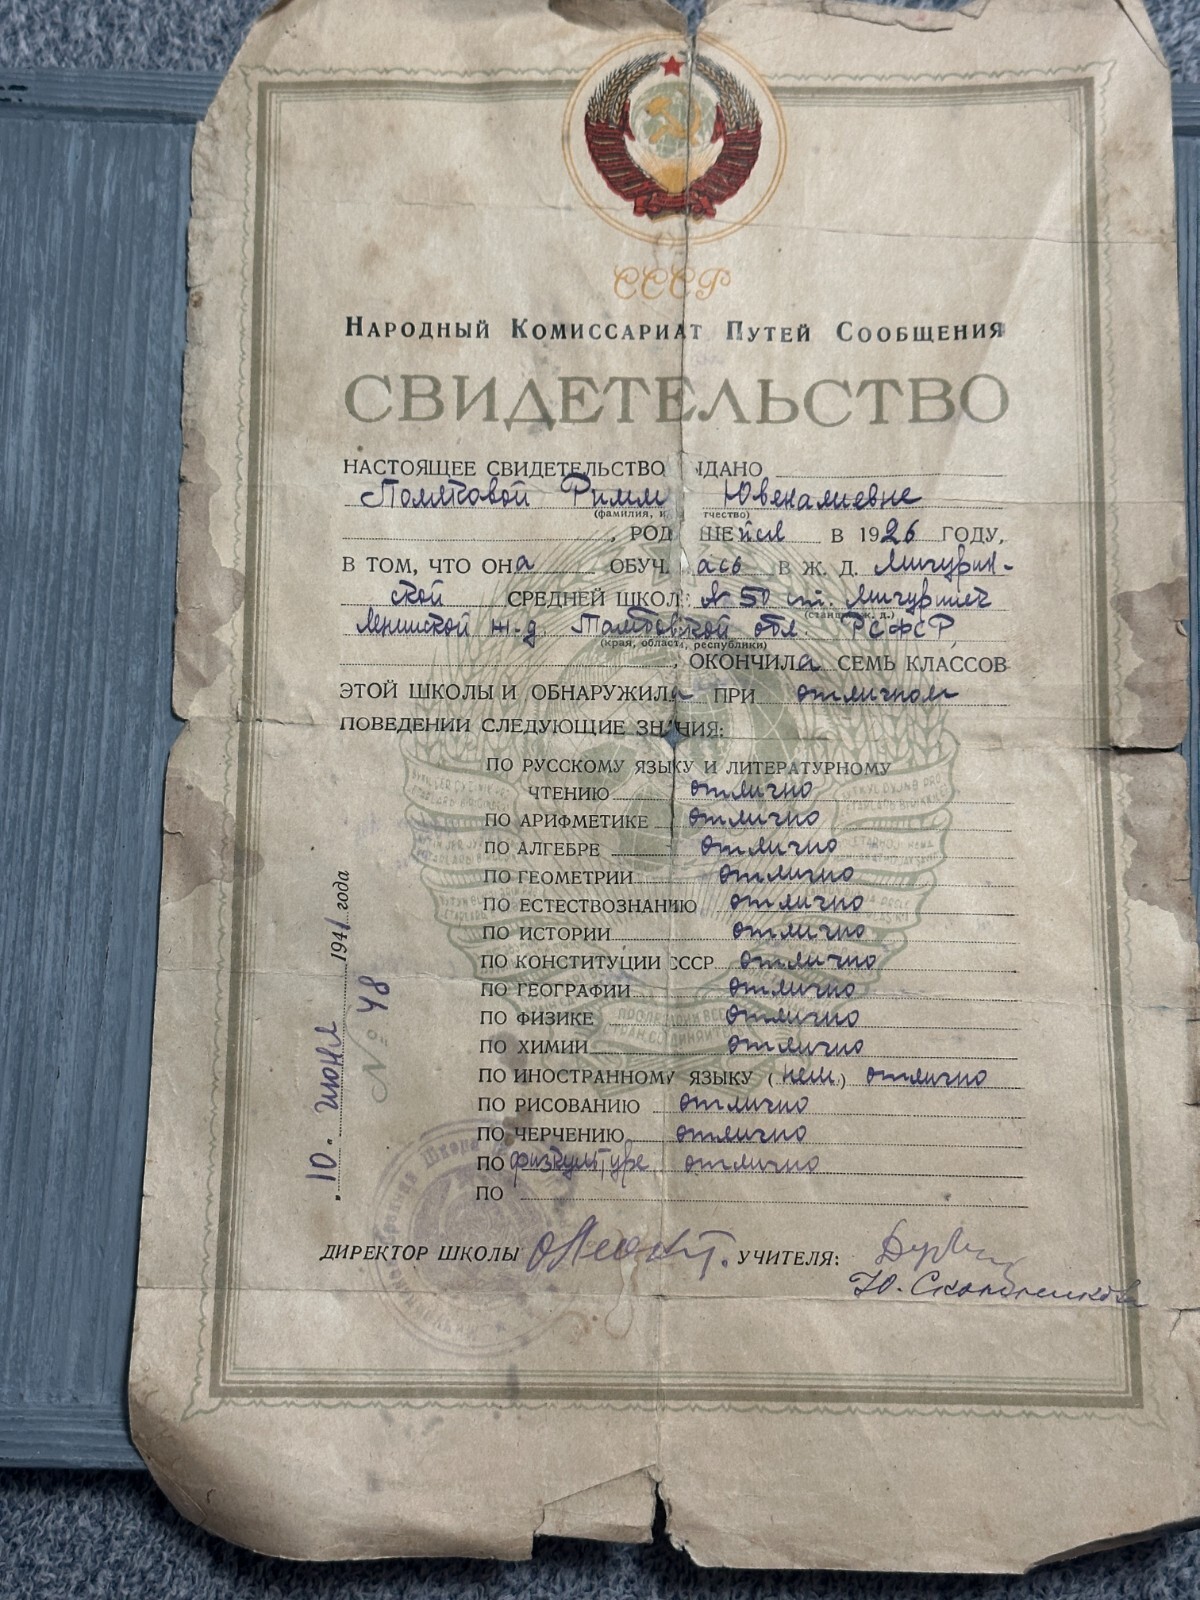 СССР
НАРОДНЫЙ КОМИССАРИАТ ПУТЕЙ СООБЩЕНИЯ
СВИДЕТЕЛЬСТВО
НАСТОЯЩЕЕ СВИДЕТЕЛЬСТВО ЫДАНО
Римм Ювеналиевне
(фамилия, и тчество)
, РОД ШЕйся В 1926 ГОДУ,
В ТОМ, ЧТО ОНа ОБУЧ ась В Ж. Д. Мичурин-
ской СРЕДНЕЙ ШКОЛ № 50 ст. Мичуринск
(станц ж. д.)
Ленинской ж-д, Тамбовской обл. РСФСР
(края, области, республики)
, ОКОНЧИЛа СЕМЬ КЛАССОВ
ЭТОЙ ШКОЛЫ И ОБНАРУЖИЛа ПРИ отличном
ПОВЕДЕНИИ СЛЕДУЮЩИЕ ЗНАНИЯ:
ПО РУССКОМУ ЯЗЫКУ И ЛИТЕРАТУРНОМУ
ЧТЕНИЮ отлично
ПО АРИФМЕТИКЕ отлично
ПО АЛГЕБРЕ отлично
ПО ГЕОМЕТРИИ отлично
ПО ЕСТЕСТВОЗНАНИЮ отлично
ПО ИСТОРИИ отлично
ПО КОНСТИТУЦИИ СССР отлично
ПО ГЕОГРАФИИ отлично
ПО ФИЗИКЕ отлично
ПО ХИМИИ отлично
ПО ИНОСТРАННОМУ ЯЗЫКУ (нем) отлично
ПО РИСОВАНИЮ отлично
ПО ЧЕРЧЕНИЮ отлично
ПО физкультуре отлично
ПО
10. июня 1941 года
№ 48
ДИРЕКТОР ШКОЛЫ УЧИТЕЛЯ: